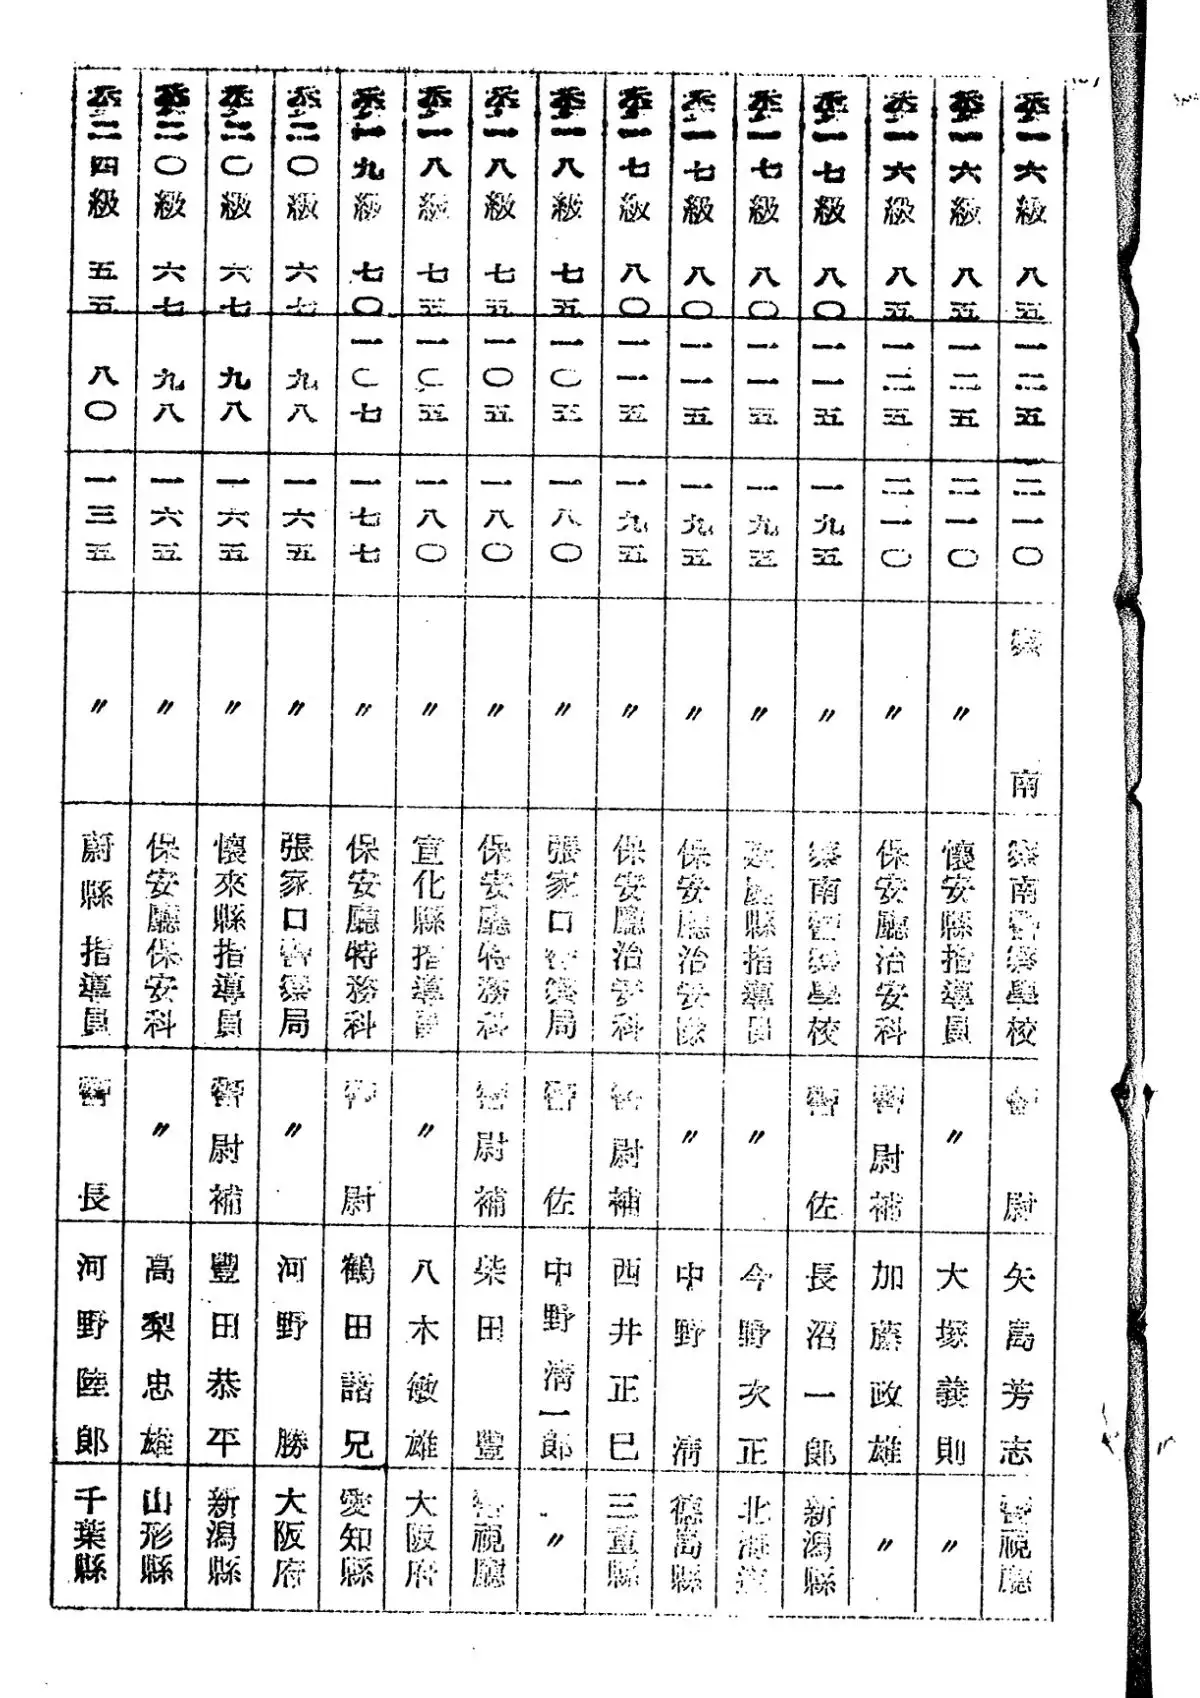 委一六級 八五 一二五 二一〇 察南 察南警察學校 警尉 矢島芳志 警視廳
委一六級 八五 一二五 二一〇 〃 懷安縣指導員 〃 大塚義則 〃
委一六級 八五 一二五 二一〇 〃 保安廳治安科 警尉補 加藤政雄 〃
委一七級 八〇 一一五 一九五 〃 察南警察學校 警佐 長沼一郎 新潟縣
委一七級 八〇 一一五 一九五 〃 縣指導員 〃 今野次正 北海道
委一七級 八〇 一一五 一九五 〃 保安廳治安科 〃 中野清 德島縣
委一七級 八〇 一一五 一九五 〃 保安廳治安科 警尉補 西井正巳 三重縣
委一八級 七五 一〇五 一八〇 〃 張家口警察局 警佐 中野清一郎 〃
委一八級 七五 一〇五 一八〇 〃 保安廳特務科 警尉補 柴田豐 警視廳
委一八級 七五 一〇五 一八〇 〃 宣化縣指導員 〃 八木敏雄 大阪府
委一九級 七〇 一〇七 一七七 〃 保安廳特務科 警尉 鶴田諧兄 愛知縣
委二〇級 六七 九八 一六五 〃 張家口警察局 〃 河野勝 大阪府
委二〇級 六七 九八 一六五 〃 懷來縣指導員 警尉補 豐田恭平 新潟縣
委二〇級 六七 九八 一六五 〃 保安廳保安科 〃 高梨忠雄 山形縣
委二四級 五五 八〇 一三五 〃 蔚縣指導員 警長 河野陸郎 千葉縣